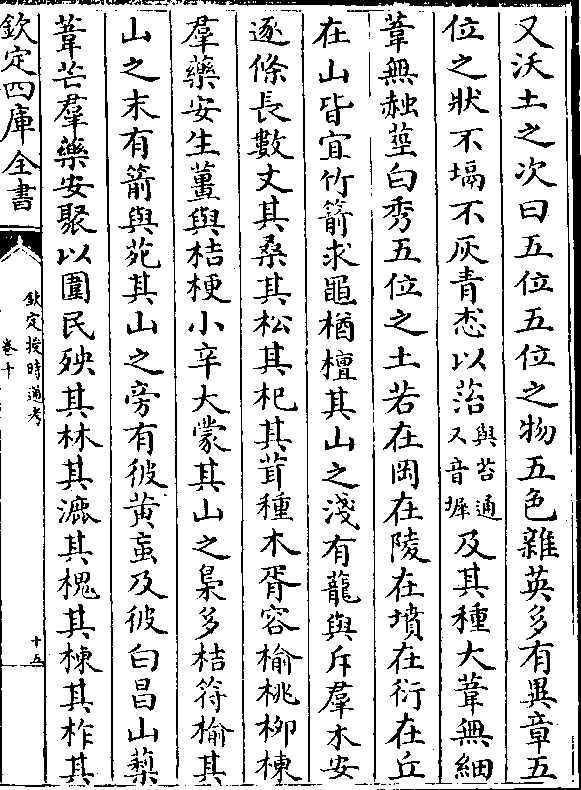 又沃土之次曰五位五位之物五色雜英多有異章五
位之狀不塥不灰青怸以菭與苔通又音墀及其種大葦無細
葦無赨莖白秀五位之土若在岡在陵在墳在衍在丘
在山皆宜竹箭求黽楢檀其山之淺有龍與斥羣木安
逐條長數丈其桑其松其杞其茸種木胥容榆桃柳楝
羣藥安生薑與桔梗小辛大蒙其山之梟多桔符榆其
山之末有箭與苑其山之旁有彼黃䖟及彼白昌山藜
葦芒羣藥安聚以圍民殃其林其漉其槐其楝其柞其
欽定四庫全書
欽定授時通考
卷十
十五